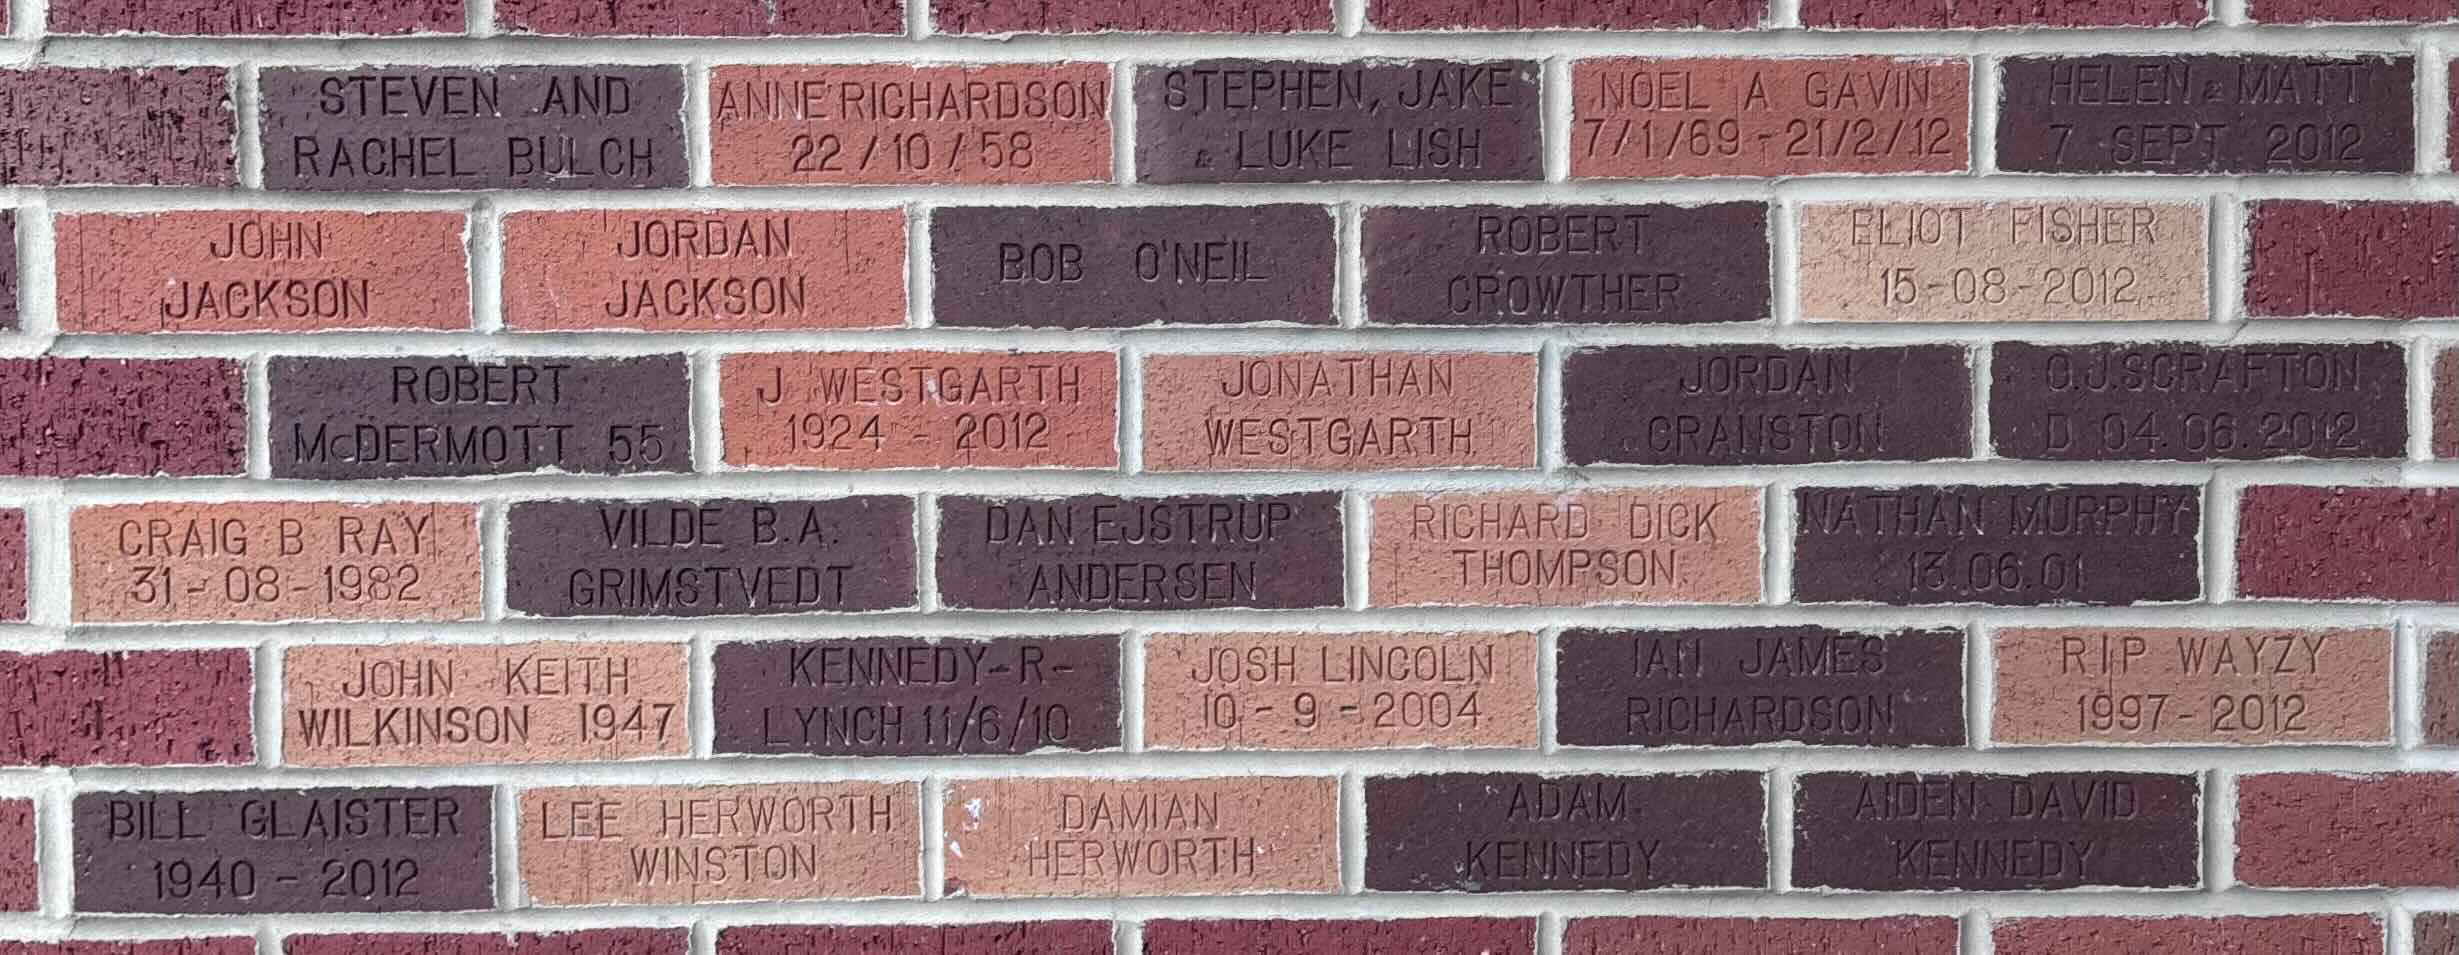 STEVEN AND
RACHEL BULCH
ANNE RICHARDSON
22/10/58
STEPHEN, JAKE
& LUKE LISH
NOEL A GAVIN
7/1/69-21/2/12
HELEN & MATT
7 SEPT 2012
JOHN
JACKSON
JORDAN
JACKSON
BOB O'NEIL
ROBERT
CROWTHER
ELIOT FISHER
15-08-2012
ROBERT
McDERMOTT 55
J WESTGARTH
1924 - 2012
JONATHAN
WESTGARTH
JORDAN
CRANSTON
O.J.SCRAFTON
D 04.06.2012
CRAIG B RAY
31-08-1982
VILDE B.A.
GRIMSTVEDT
DAN EJSTRUP
ANDERSEN
RICHARD DICK
THOMPSON
NATHAN MURPHY
13.06.01
JOHN KEITH
WILKINSON 1947
KENNEDY-R-
LYNCH 11/6/10
JOSH LINCOLN
10-9-2004
IAN JAMES
RICHARDSON
RIP WAYZY
1997-2012
BILL GLAISTER
1940 - 2012
LEE HERWORTH
WINSTON
DAMIAN
HERWORTH
ADAM
KENNEDY
AIDEN DAVID
KENNEDY